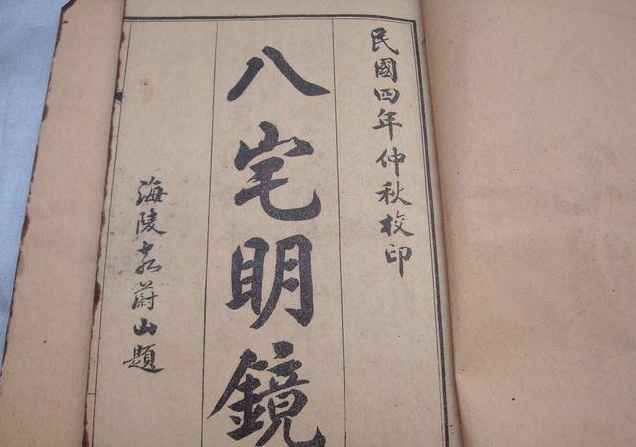 民國四年仲秋校印
八宅明鏡
海陵 蔚山題